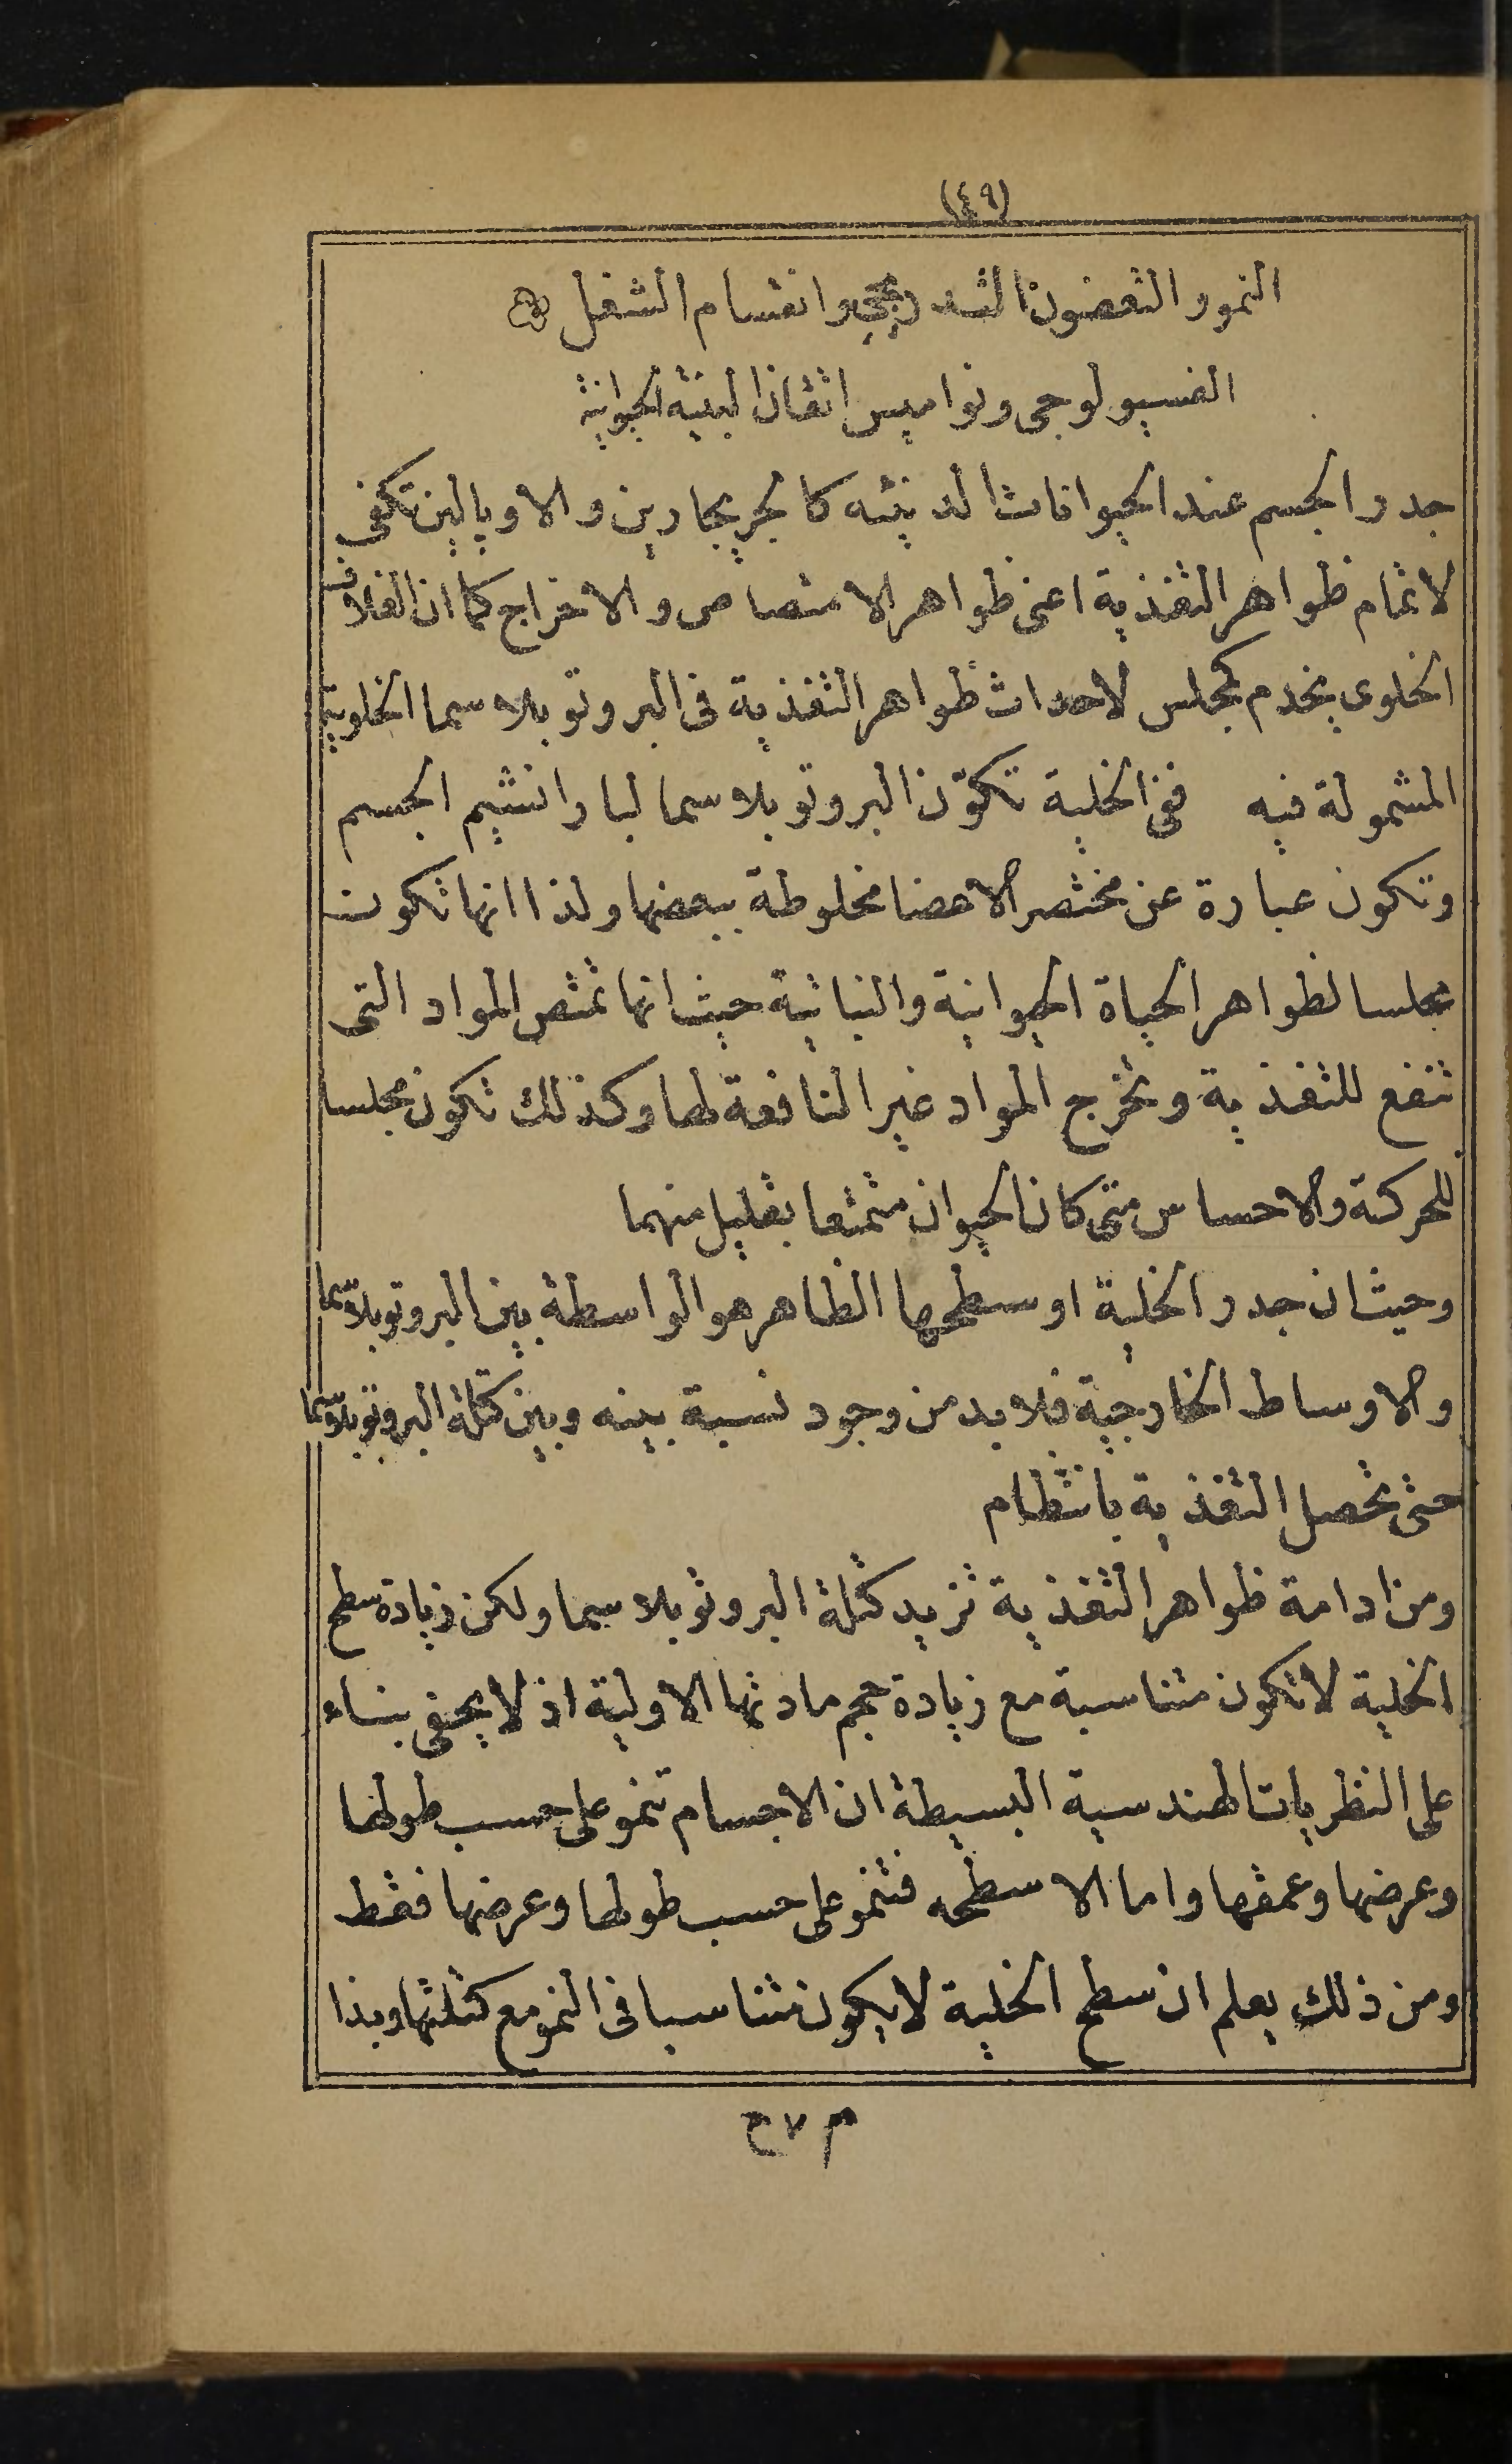 (٤٩)
النمو والتعضون التدريجي وانقسام الشغل
الفسيولوجى ونواميس اتقان البنية الحيوانية
جدر الجسم عند الحيوانات الدنيئه كالجريجارين والاوبالين تكفى
لاتمام ظواهر التغذية اعنى ظواهر الامتصاص والاخراج كما ان الغلاف
الخلوى يخدم كمجلس لاحداث ظواهر التغذية فى البروتوبلاسما الخلوية
المشمولة فيه ففى الخلية تكوّن البروتوبلاسما لبارانشيم الجسم
وتكون عبارة عن مختصر الاعضا مخلوطة ببعضها ولذا انها تكون
مجلسا لظواهر الحياة الحيوانية والنباتية حيث انها تمتص المواد التى
تنفع للتغذية وتخرج المواد غير النافعة لها وكذلك تكون مجلسا
للحركة والاحساس متى كان الحيوان متمتعا بقليل منهما
وحيث ان جدر الخلية او سطحها الظاهر هو الواسطة بين البروتوبلاسما
والاوساط الخارجية فلابد من وجود نسبة بينه وبين كتلة البروتوبلاسما
حتى تحصل التغذية بانتظام
ومن ادامة ظواهر التغذية تزيد كتلة البروتوبلاسما ولكن زيادة سطح
الخلية لا تكون متناسبة مع زيادة حجم مادتها الاولية اذ لا يخفى بناء
على النظريات الهندسية البسيطة ان الاجسام تنمو على حسب طولها
وعرضها وعمقها واما الاسطحه فتنمو على حسب طولها وعرضها فقط
ومن ذلك يعلم ان سطح الخلية لا يكون متناسبا فى النمو مع كتلتها وبذا
م ٧ ح